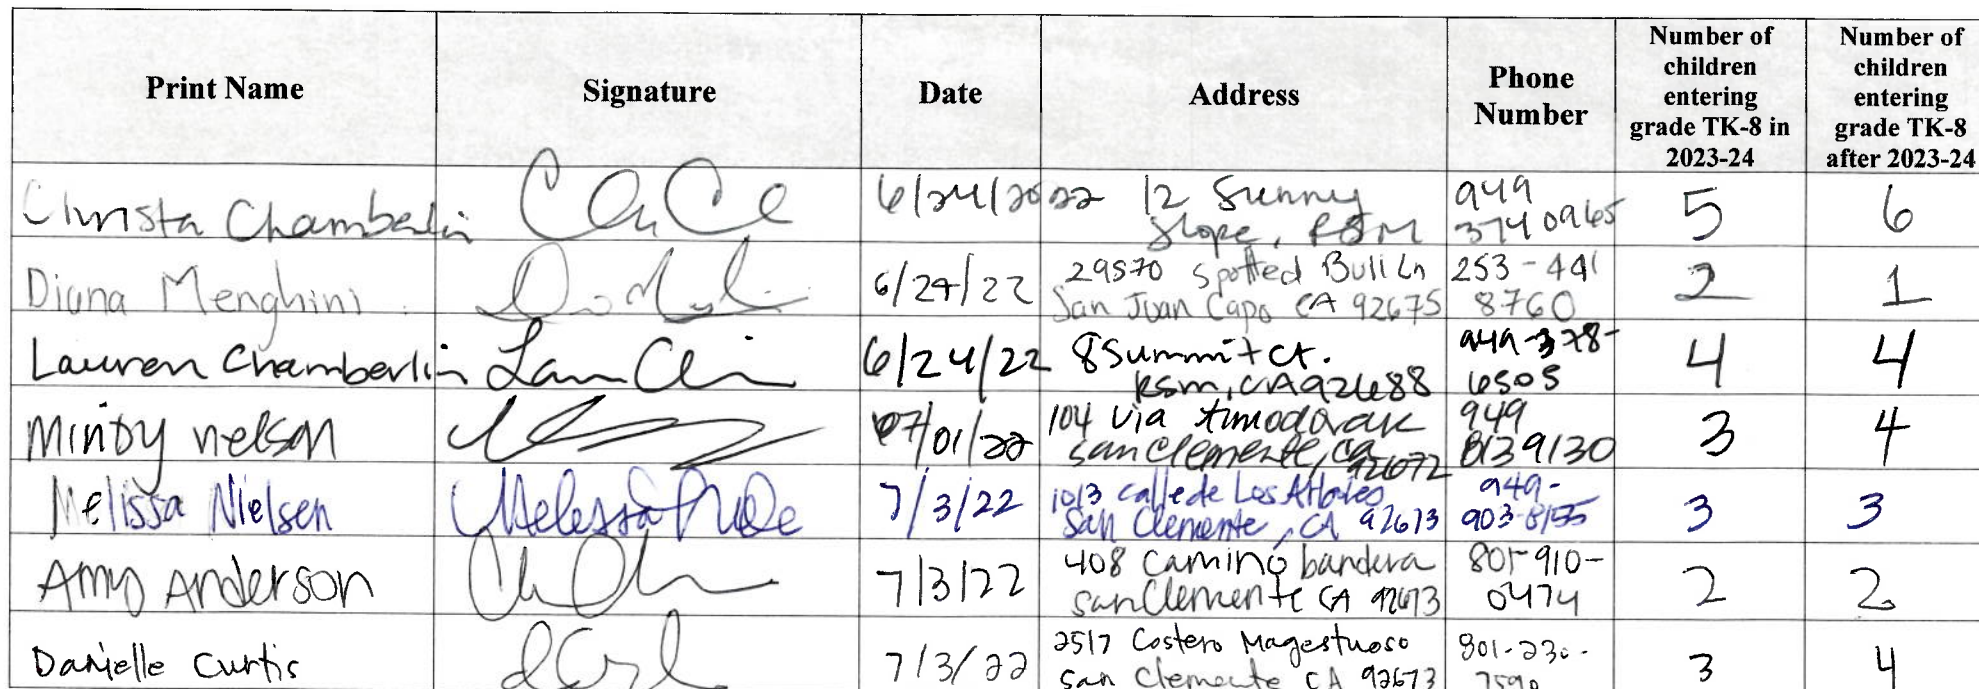 Print Name
Signature
Date
Address
Phone
Number
Number of
children
entering
grade TK-8 in
2023-24
Number of
children
entering
grade TK-8
after 2023-24
Christa Chamberlin
6/24/2022
12 Sunny
Slope, RSM
949
3740965
5
6
Diana Menghini
6/24/22
29570 Spotted Bull Ln
San Juan Capo CA 92675
253-441
8760
2
1
Lauren Chamberlin
6/24/22
8 Summit Ct.
RSM, CA 92688
949-378-
6505
4
4
Mindy Nelson
07/01/22
104 Via
San Clemente, CA
92672
949
8139130
3
4
Melissa Nielsen
7/3/22
1013 Calle de Los
San Clemente, CA 92673
949-
903-8155
3
3
Amy Anderson
7/3/22
408 Camino bandera
San Clemente CA 92673
801-910-
0474
2
2
Danielle Curtis
7/3/22
2517 Costero Magestuoso
San Clemente CA 92673
801-230-
3
4